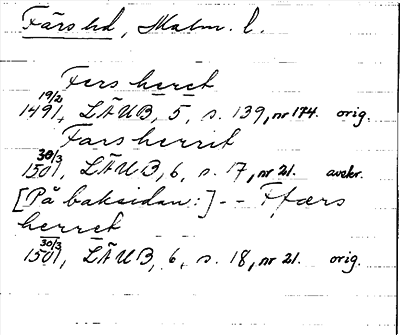 Färs hd, Malm. l.
Fers heret
19/2 1491, LÄUB, 5, s. 139, nr 174. orig.
Fars herrit
30/3 1501, LÄUB, 6, s. 17, nr 21. avskr.
[På baksidan:] - - Ffærs
herret
30/3 1501, LÄUB, 6, s. 18, nr 21. orig.